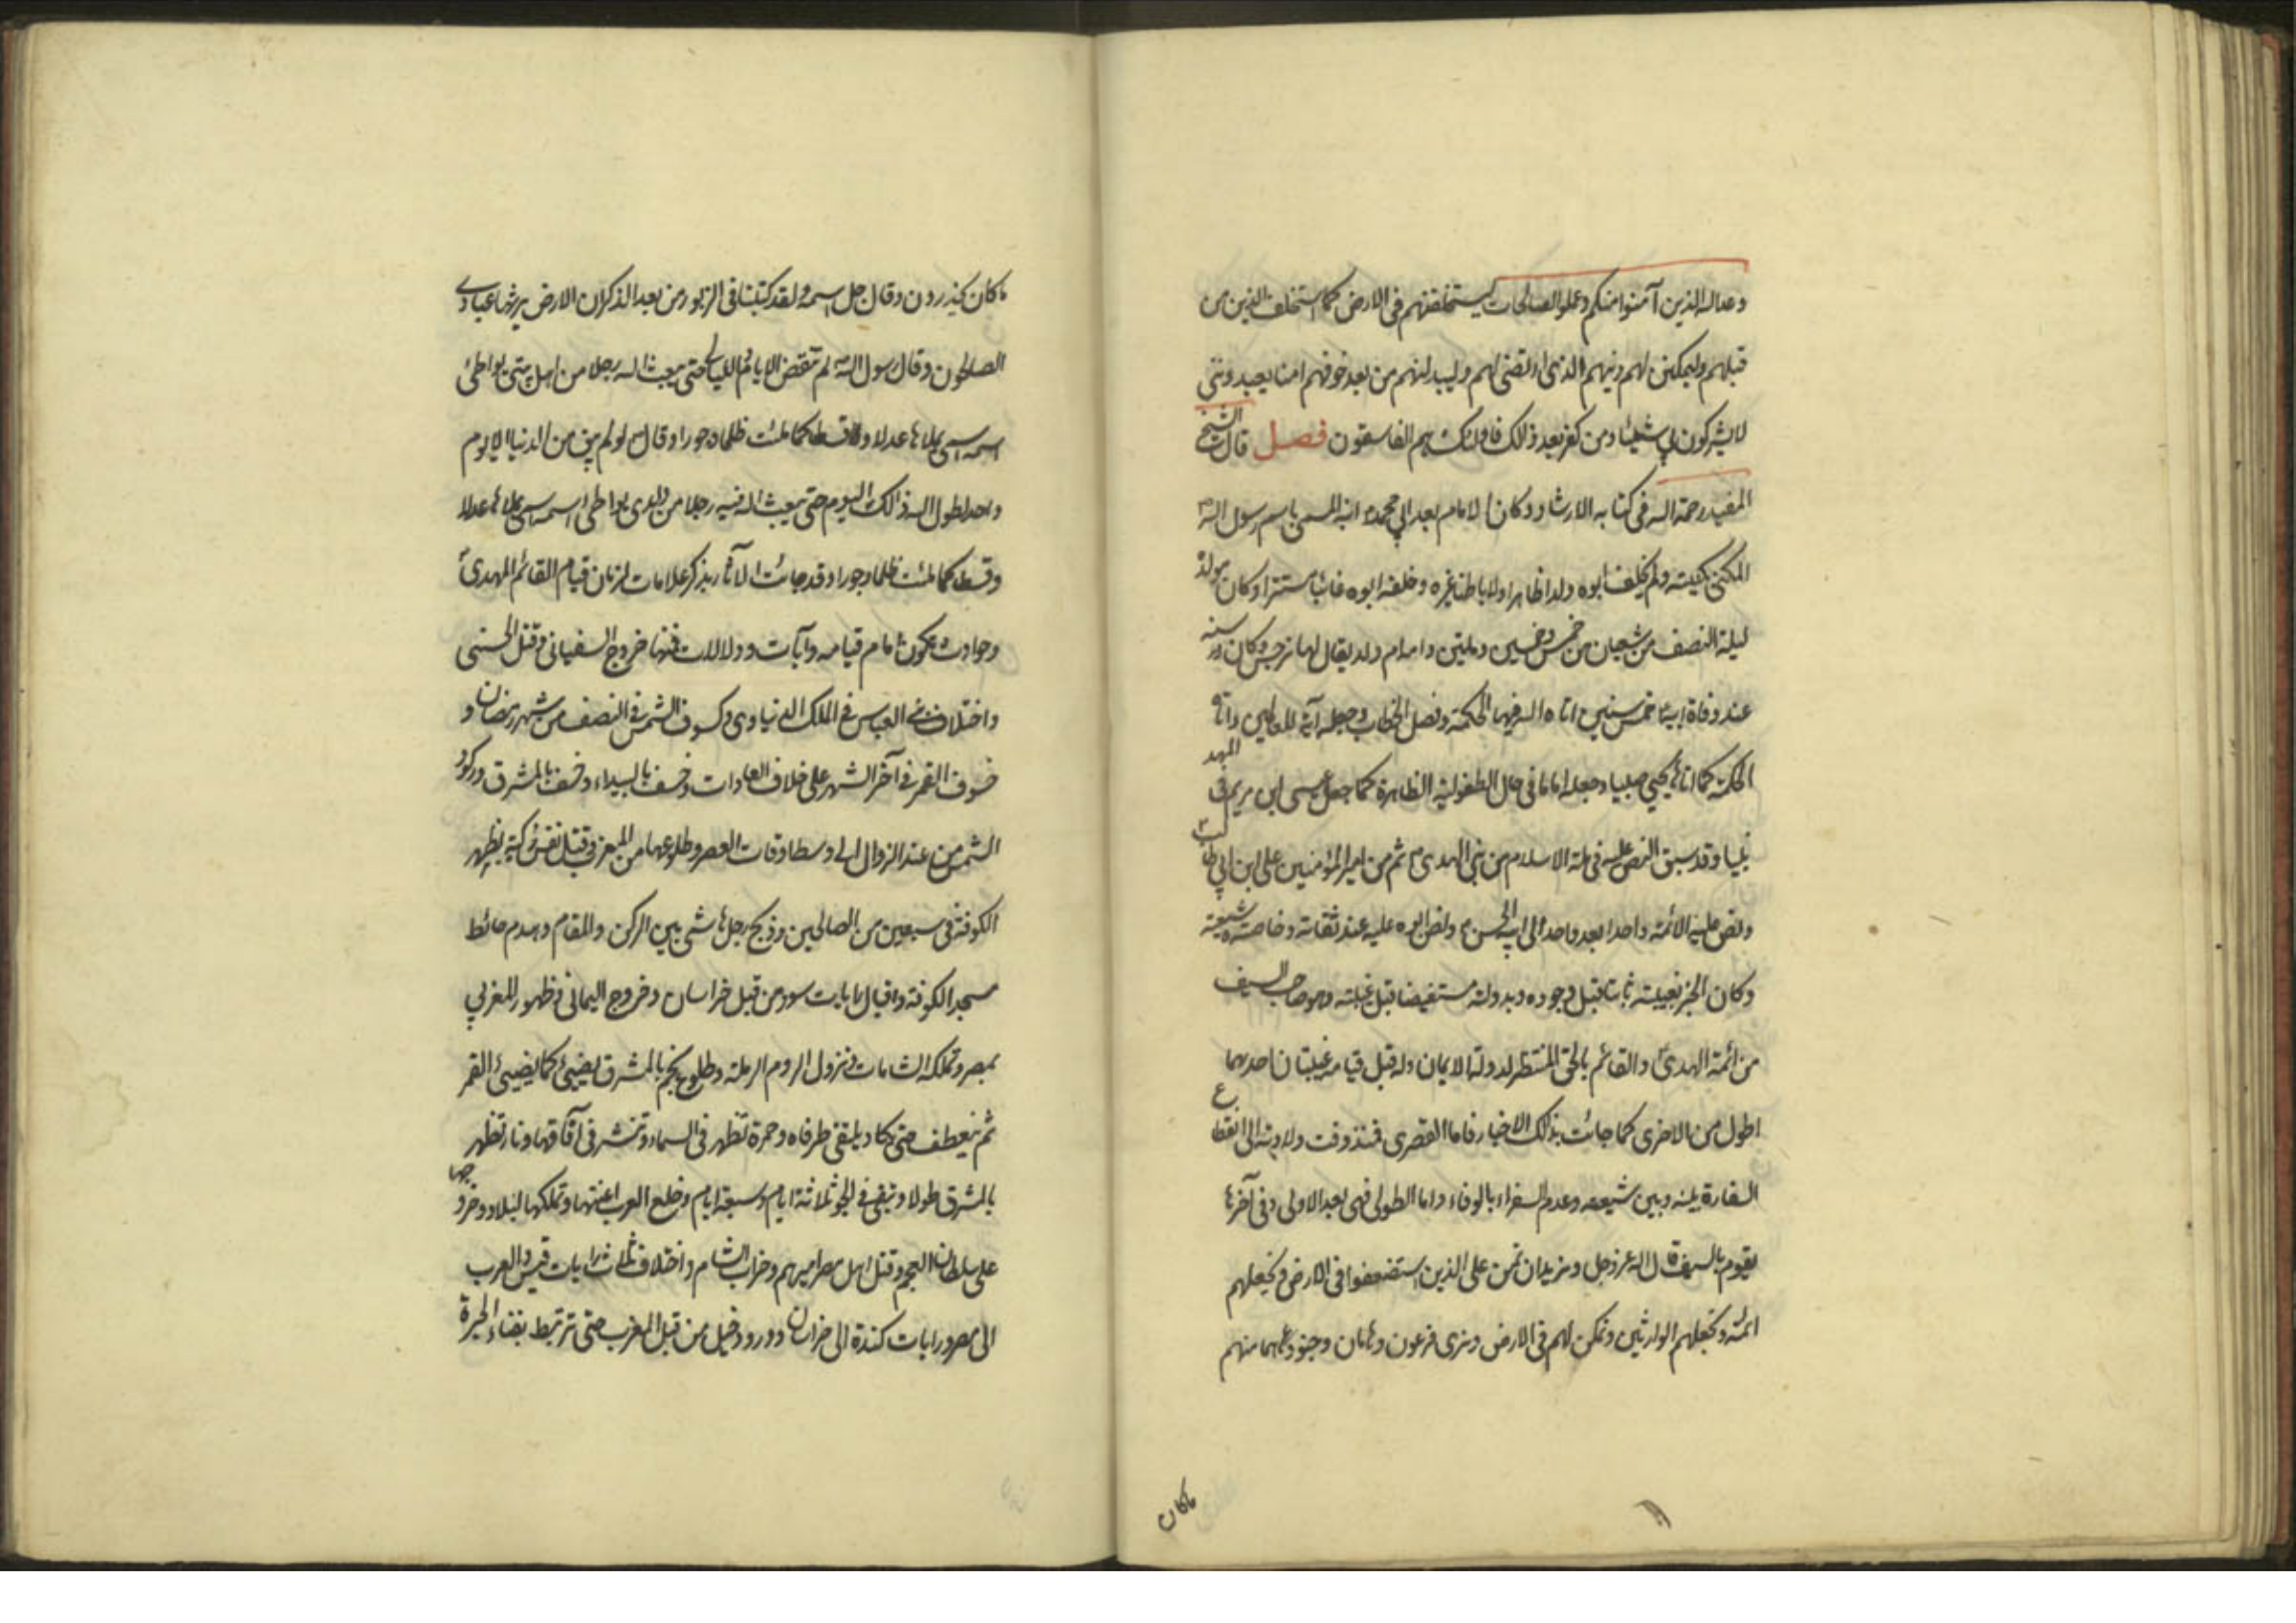 وعد الله الذين آمنوا منكم وعملوا الصالحات ليستخلفنهم فى الارض كما استخلف الذين من
قبلهم وليمكنن لهم دينهم الذى ارتضى لهم وليبدلنهم من بعد خوفهم امنا يعبدوننى
لايشركون بي شيئا ومن كفر بعد ذالك فاولئك هم الفاسقون فصل قال الشيخ
المفيد رحمة الله فى كتابه الارشاد وكان الامام بعد ابي محمد ابنه المسمى باسم رسول الله
المكنى بكنيته ولم يخلف ابوه ولدا ظاهرا ولا باطنا غيره وخلفه ابوه غائبا مستترا وكان مولده
ليلة النصف من شعبان من خمس وخمسين ومأتين وامه ام ولد يقال لها نرجس وكان سنه
عند وفاة ابيه خمس سنين اتاه الله فيها الحكمة وفصل الخطاب وجعله آية للعالمين واتاه
الحكمة كما اتاها يحيى صبيا وجعله اماما فى حال الطفولية الظاهرة كما جعل عيسى ابن مريم فى المهد
نبيا وقد سبق النص عليه فى ملة الاسلام من نبى الهدى ثم من امير المؤمنين على ابن ابي طالب
ونص عليه الائمة واحدا بعد واحد الى ابيه الحسن ونص ابوه عليه عند ثقاته وخاصته شيعته
وكان الخبر بغيبته ثابتا قبل وجوده وبدولته مستفيضا قبل غيبته وهو صاحب السيف
من ائمة الهدى والقائم بالحق المنتظر لدولة الايمان وله قبل قيامه غيبتان احديهما
اطول من الاخرى كما جائت بذالك الاخبار فاما القصرى فمنذ وقت ولادته الى انقطاع
السفارة بينه وبين شيعته وعدم السفراء بالوفاء واما الطولى فهى بعد الاولى وفى آخرها
يقوم بالسيف قال الله عز وجل ونريد ان نمن على الذين استضعفوا فى الارض ونجعلهم
ائمة ونجعلهم الوارثين ونمكن لهم فى الارض ونرى فرعون وهامان وجنودهما منهم
ماكان
ماكان يحذرون وقال جل اسمه ولقد كتبنا فى الزبور من بعد الذكر ان الارض يرثها عبادى
الصالحون وقال رسول الله لم تنقض الايام والليالى حتى يبعث الله رجلا من اهل بيتى يواطئ
اسمه اسمى يملاها عدلا وقسطا كما ملئت ظلما وجورا وقال لو لم يبق من الدنيا الا يوم
واحد لطول الله ذالك اليوم حتى يبعث الله فيه رجلا من ولدى يواطى اسمه اسمى يملاها عدلا
وقسطا كما ملئت ظلما وجورا وقد جائت الآثار بذكر علامات لزمان قيام القائم المهدى
وحوادث تكون امام قيامه وآيات ودلالات فمنها خروج السفيانى وقتل الحسنى
واختلاف بنى العباس فى الملك الدنياوى وكسوف الشمس فى النصف من شهر رمضان و
خسوف القمر فى آخر الشهر على خلاف العادات وخسف بالبيداء وخسف بالمشرق وركود
الشمس من عند الزوال الى وسط اوقات العصر وطلوعها من المغرب وقتل نفس زكية بظهر
الكوفة فى سبعين من الصالحين وذبح رجل هاشمى بين الركن والمقام وهدم حائط
مسجد الكوفة واقبال رايات سود من قبل خراسان وخروج اليمانى وظهور المغربي
بمصر وتملكه الشامات ونزول الروم الرملة وطلوع نجم بالمشرق يضيئ كما يضيئ القمر
ثم ينعطف حتى يكاد يلتقى طرفاه وحمرة تظهر فى السماء وتنتشر فى آفاقها ونار تظهر
بالمشرق طولا وتبقى فى الجو ثلاثة ايام وسبعة ايام وخلع العرب اعنتها وتملكها البلاد وخروجها
على سلطان العجم وقتل اهل مصر اميرهم وخراب الشام واختلاف ثلاث رايات قيس والعرب
الى مصر ورايات كندة الى خراسان وورود خيل من قبل المغرب حتى تربط بفناء الحيرة